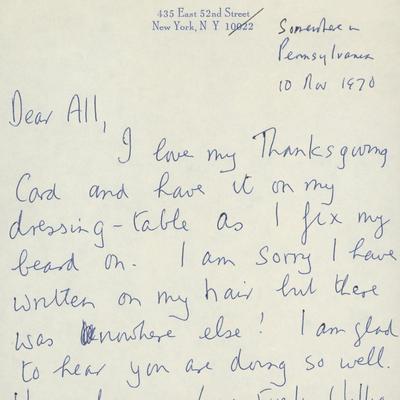 435 East 52nd Street
New York, N Y 10022
Somewhere in
Pennsylvania
10 Nov 1970
Dear All,
I love my Thanksgiving
Card and have it on my
dressing-table as I fix my
beard on. I am sorry I have
written on my hair but there
was nowhere else! I am glad
to hear you are doing so well.